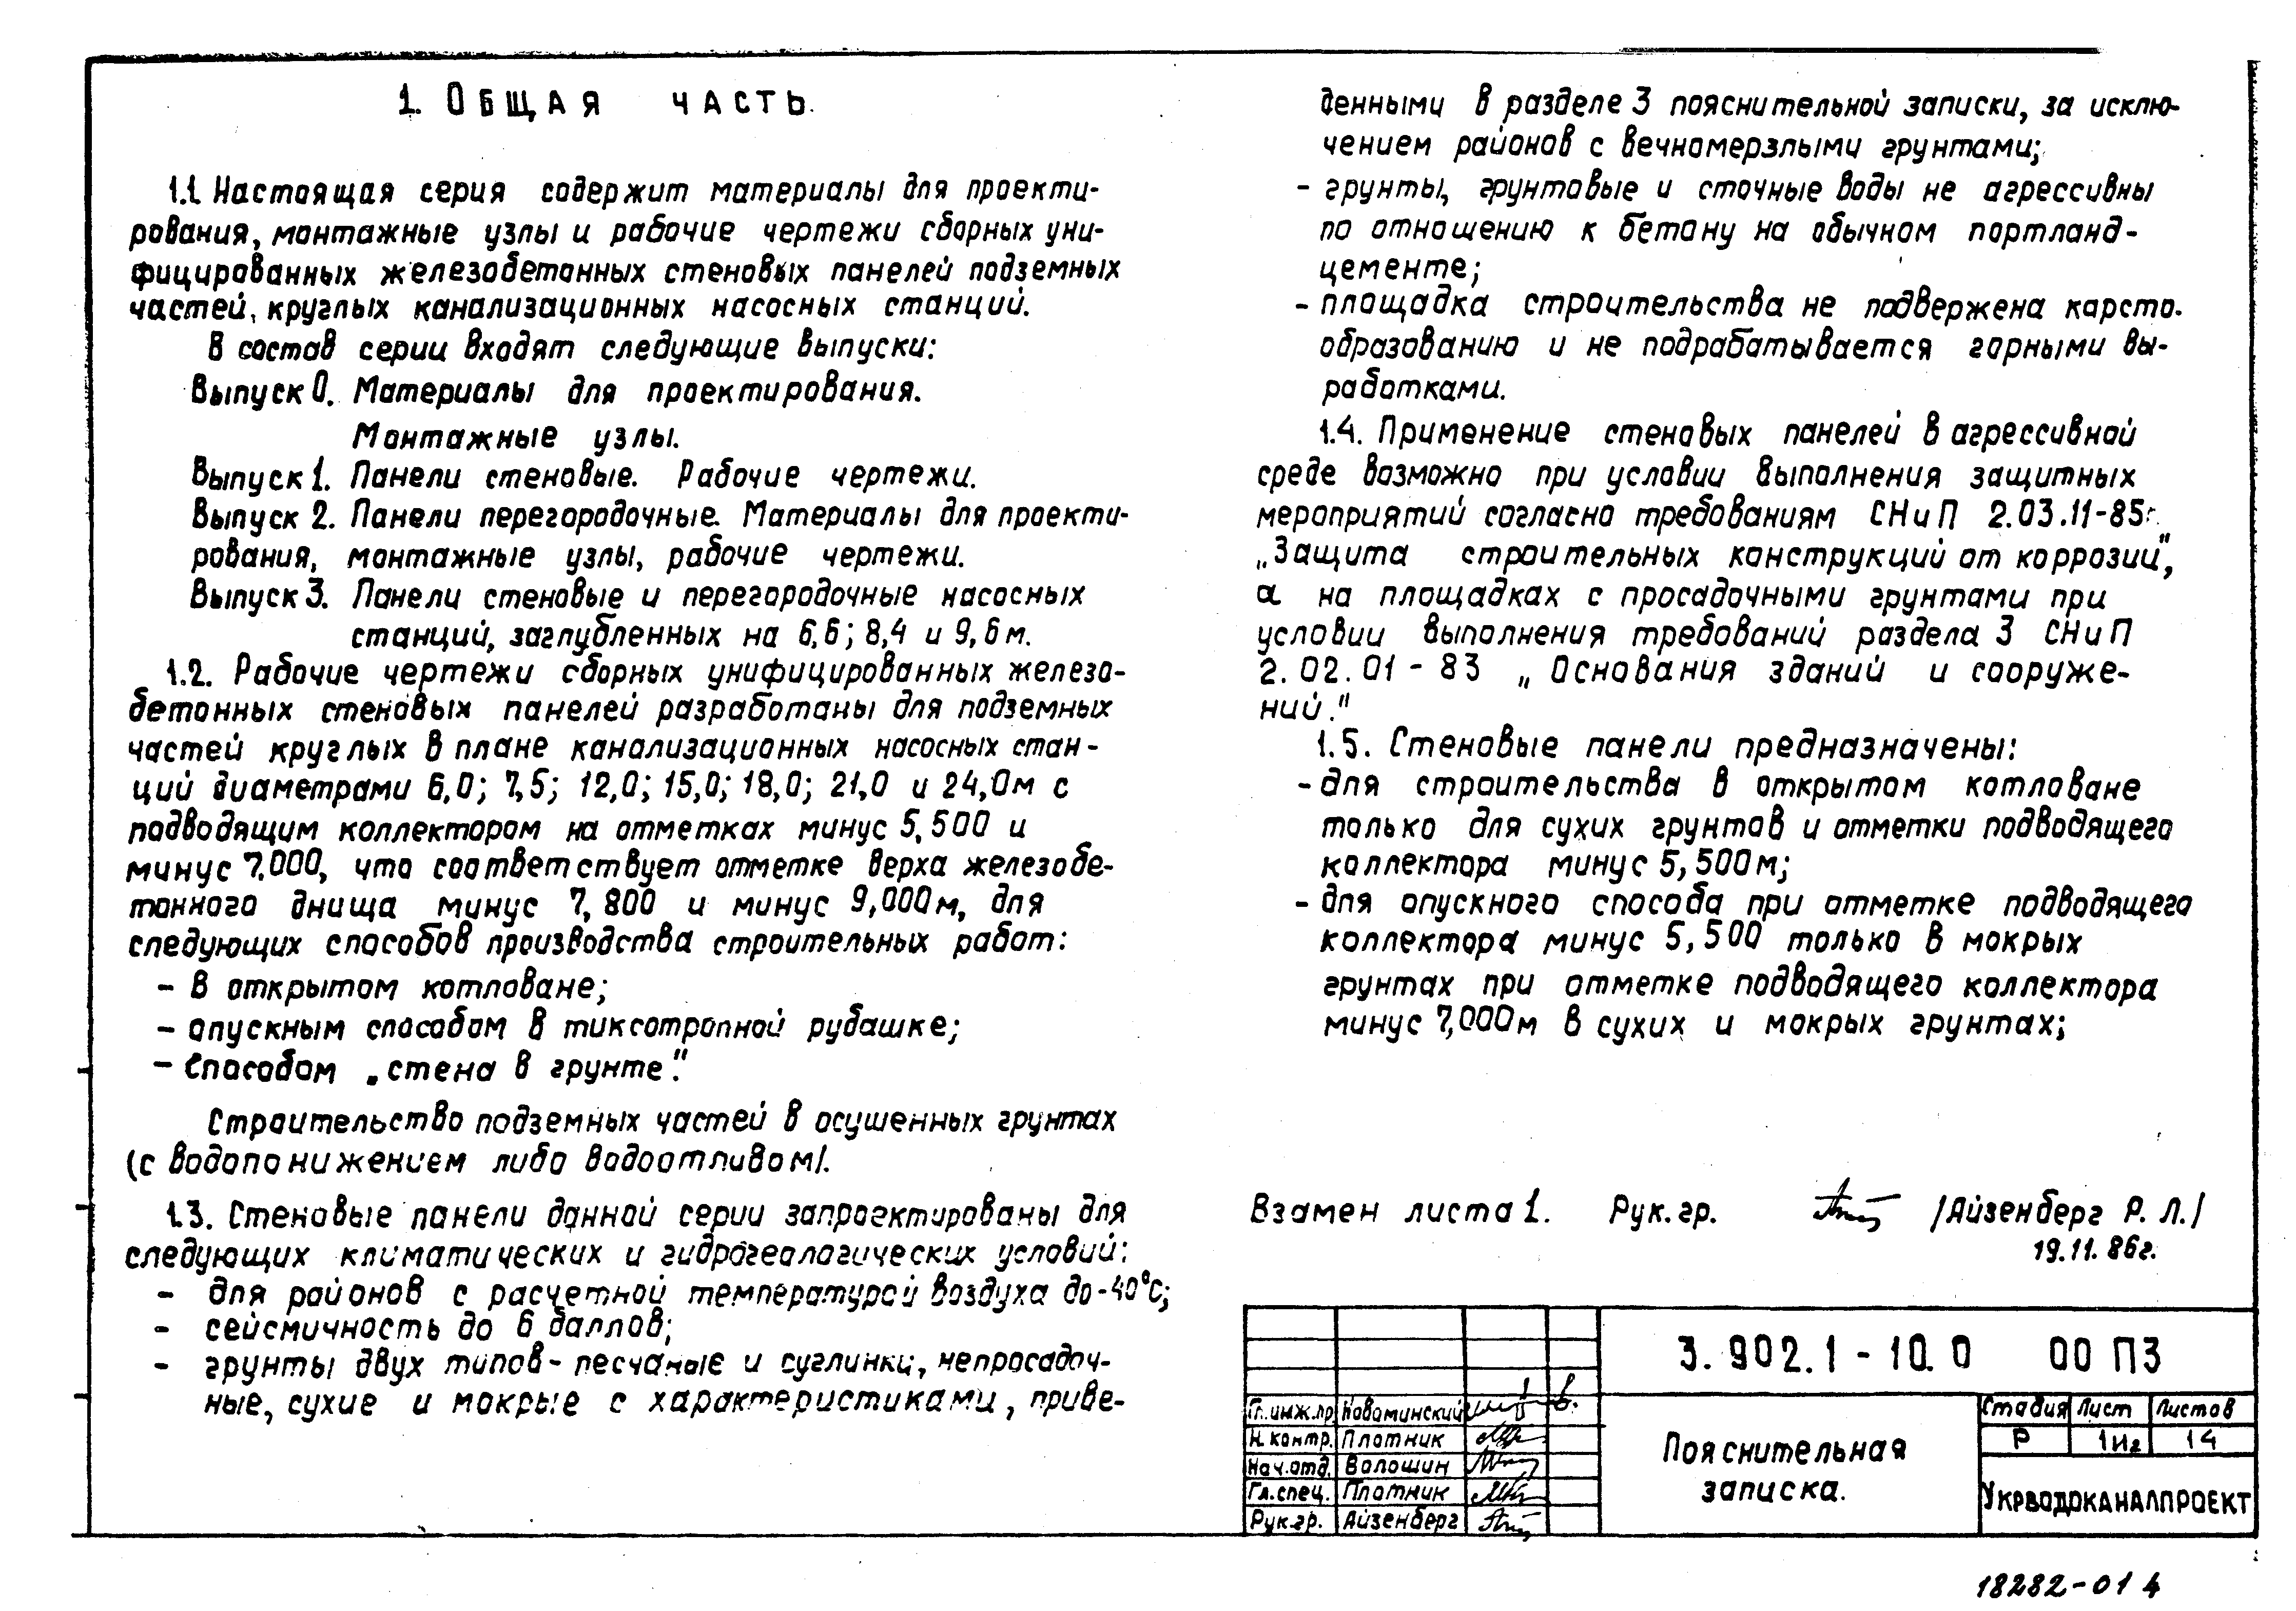 1. Общая часть.
1.1. Настоящая серия содержит материалы для проекти-
рования, монтажные узлы и рабочие чертежи сборных уни-
фицированных железобетонных стеновых панелей подземных
частей, круглых канализационных насосных станций.
В состав серии входят следующие выпуски:
Выпуск 0. Материалы для проектирования.
Монтажные узлы.
Выпуск 1. Панели стеновые. Рабочие чертежи.
Выпуск 2. Панели перегородочные. Материалы для проекти-
рования, монтажные узлы, рабочие чертежи.
Выпуск 3. Панели стеновые и перегородочные насосных
станций, заглубленных на 6,6; 8,4 и 9,6 м.
1.2. Рабочие чертежи сборных унифицированных железо-
бетонных стеновых панелей разработаны для подземных
частей круглых в плане канализационных насосных стан-
ций диаметрами 6,0; 7,5; 12,0; 15,0; 18,0; 21,0 и 24,0м с
подводящим коллектором на отметках минус 5,500 и
минус 7.000, что соответствует отметке верха железобе-
тонного днища минус 7,800 и минус 9,000м, для
следующих способов производства строительных работ:
- в открытом котловане;
- опускным способом в тиксотропной рубашке;
- способом „стена в грунте".
Строительство подземных частей в осушенных грунтах
(с водопонижением либо водоотливом).
1.3. Стеновые панели данной серии запроектированы для
следующих климатических и гидрогеологических условий:
- для районов с расчетной температурой воздуха до -40°С;
- сейсмичность до 6 баллов;
- грунты двух типов - песчаные и суглинки, непросадоч-
ные, сухие и мокрые с характеристиками, приве-
денными в разделе 3 пояснительной записки, за исклю-
чением районов с вечномерзлыми грунтами;
- грунты, грунтовые и сточные воды не агрессивны
по отношению к бетону на обычном портланд-
цементе;
- площадка строительства не подвержена карсто-
образованию и не подрабатывается горными вы-
работками.
1.4. Применение стеновых панелей в агрессивной
среде возможно при условии выполнения защитных
мероприятий согласно требованиям СНиП 2.03.11-85г.
„Защита строительных конструкций от коррозии",
а на площадках с просадочными грунтами при
условии выполнения требований раздела 3 СНиП
2.02.01 - 83 „Основания зданий и сооруже-
ний."
1.5. Стеновые панели предназначены:
- для строительства в открытом котловане
только для сухих грунтов и отметки подводящего
коллектора минус 5,500м;
- для опускного способа при отметке подводящего
коллектора минус 5,500 только в мокрых
грунтах при отметке подводящего коллектора
минус 7,000м в сухих и мокрых грунтах;
Взамен листа 1. Рук. гр. /Айзенберг Р. Л./
19.11.86г.
3.902.1 - 10.0 00 ПЗ
Гл. инж. пр. Новоминский
Н. контр. Плотник
Нач. отд. Волошин
Гл. спец. Плотник
Рук. гр. Айзенберг
Пояснительная
записка.
Стадия Лист Листов
Р 1и2 14
Укрводоканалпроект
18282-01 4